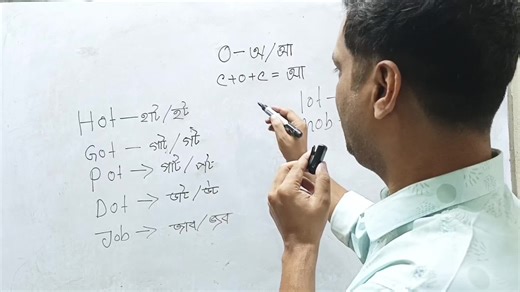 O – অ/আ
C+O+C = আ
Hot – হাট/হট
Got – গাট/গট
Pot → পাট/পট
Dot → ডাট/ডট
Job → জাব/জব
lot –
nob –